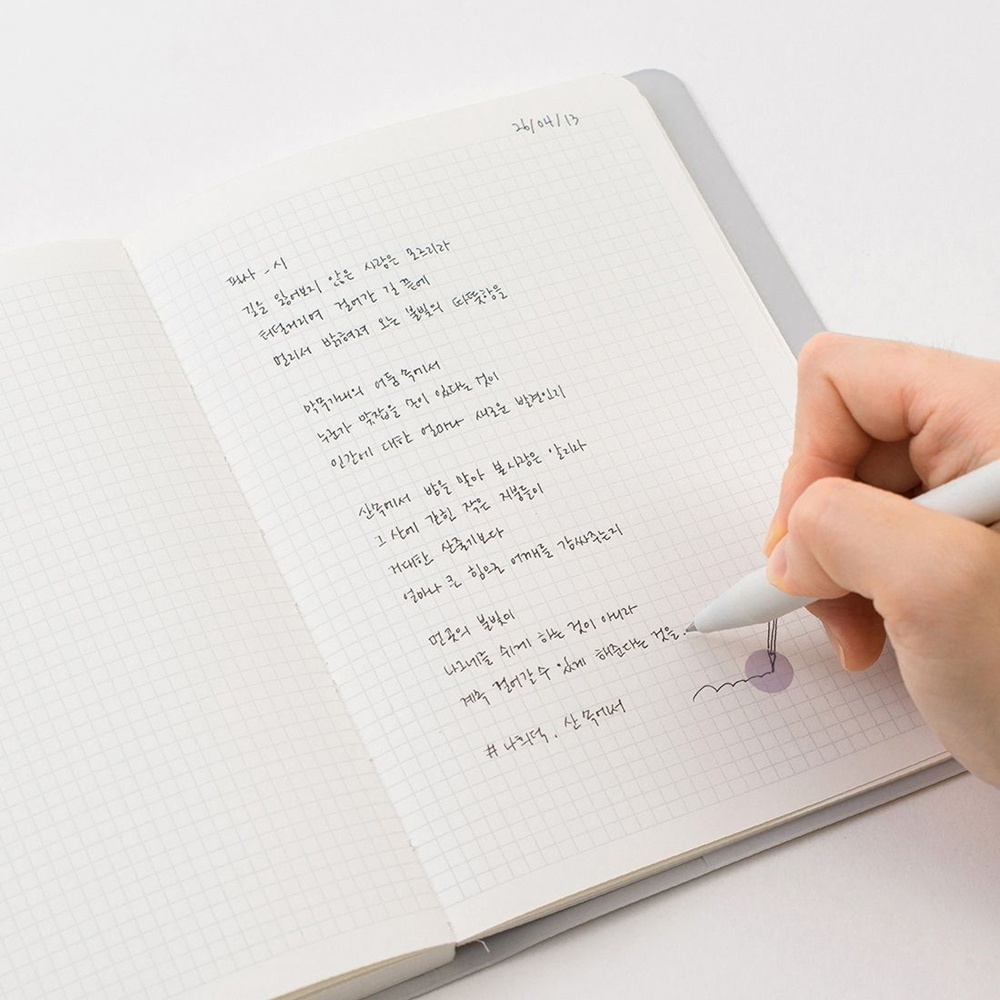 26/04/13
필사 - 시
길을 잃어보지 않은 사람은 모르리라
터덜거리며 걸어간 길 끝에
멀리서 밝혀져 오는 불빛의 따뜻함을
막무가내의 어둠 속에서
누군가 맞잡을 손이 있다는 것이
인간에 대한 얼마나 새로운 발견인지
산속에서 밤을 맞아 본 사람은 알리라
그 산에 갇힌 작은 지붕들이
거대한 산줄기보다
얼마나 큰 힘으로 어깨를 감싸주는지
먼 곳의 불빛이
나그네를 쉬게 하는 것이 아니라
계속 걸어갈 수 있게 해준다는 것을.
# 나희덕, 산 속에서